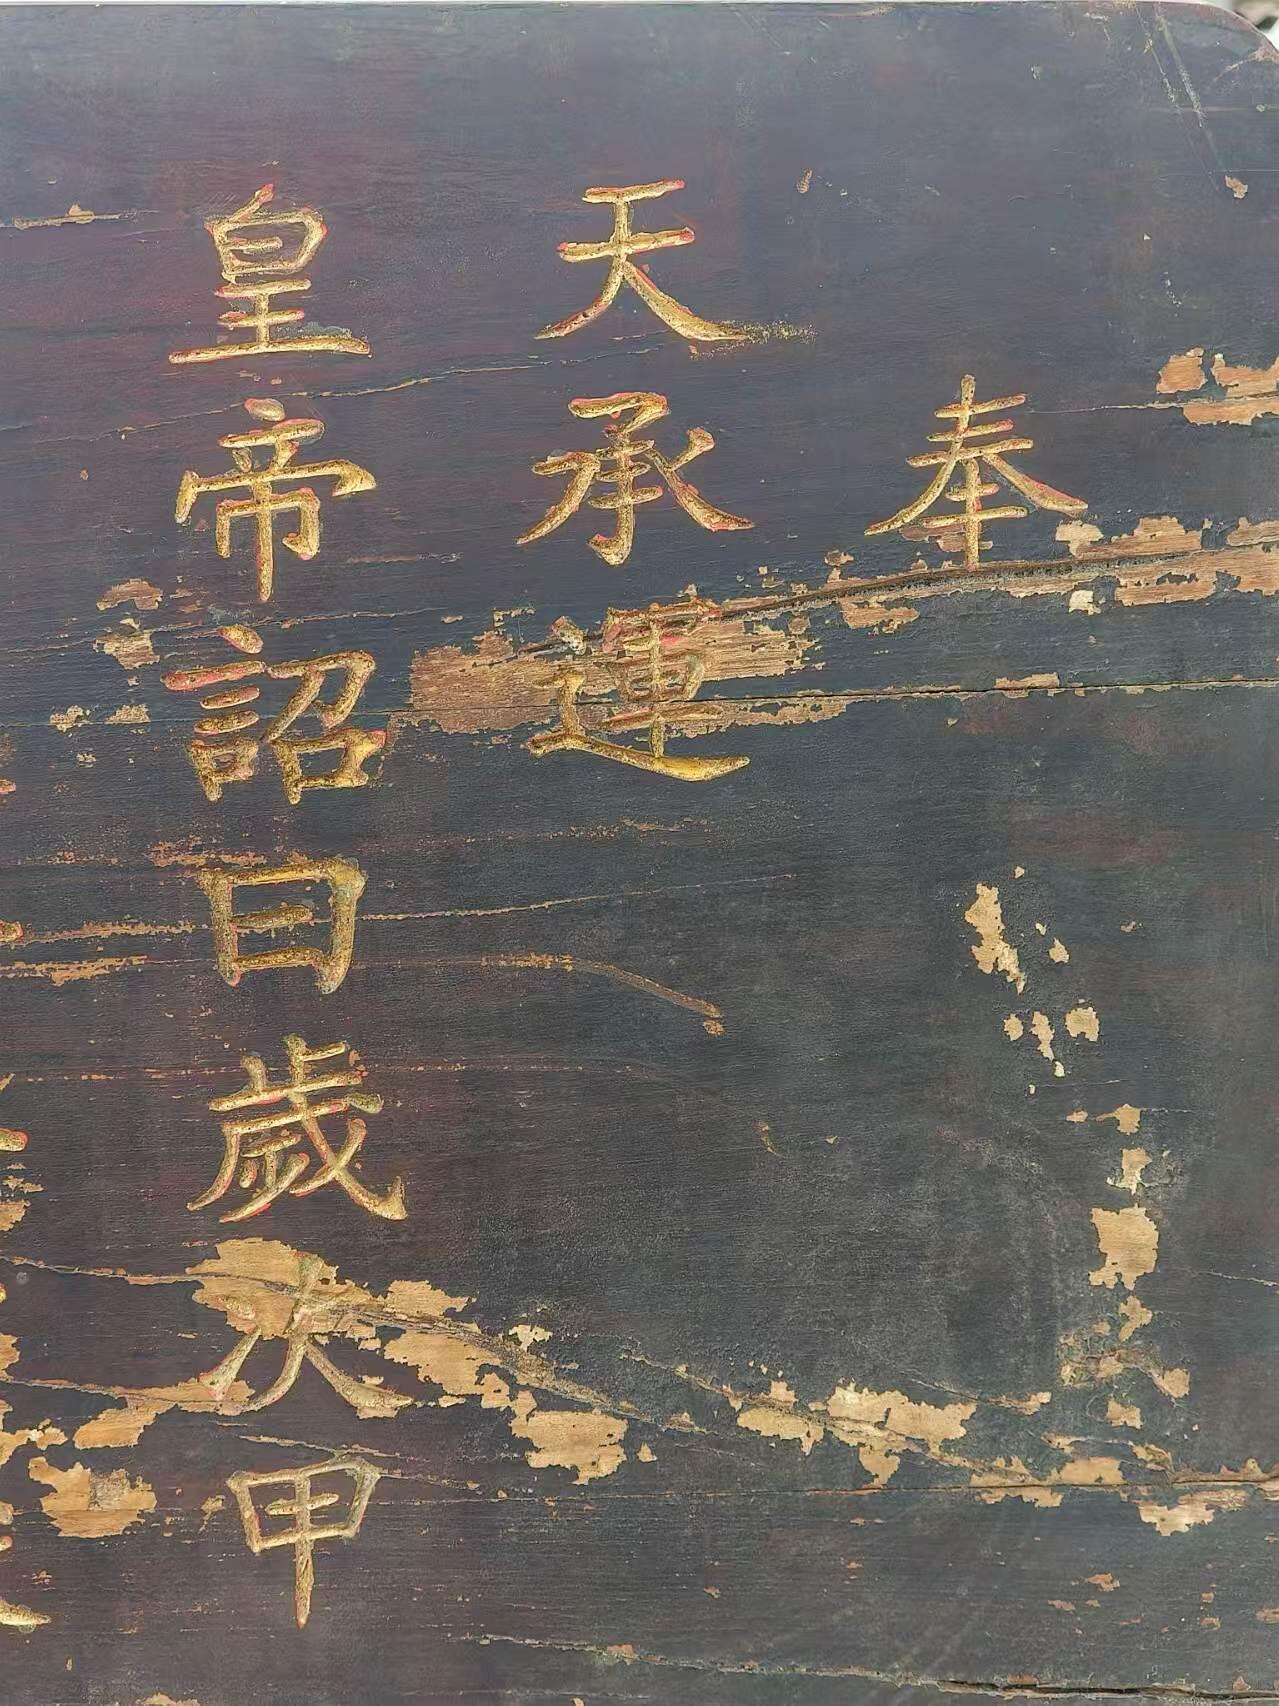 奉
天承運
皇帝詔曰歲次甲